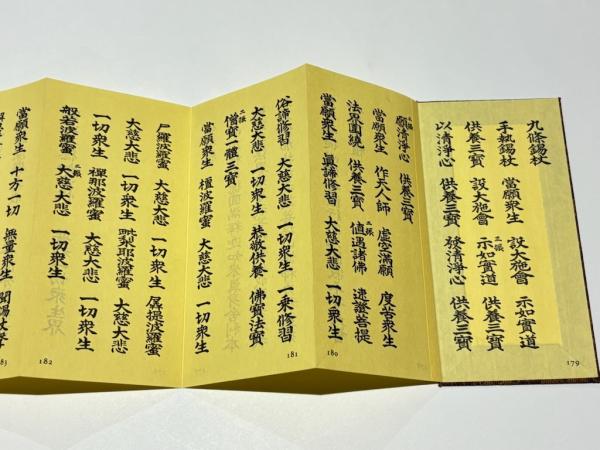 九條錫杖
手執錫杖 當願衆生 設大施會 示如實道
供養三寳 設大施會 二張 示如實道 供養三寳
以清淨心 供養三寳 發清淨心 供養三寳
179
二張 願清淨心 供養三寳
當願衆生 作天人師 虚空滿願 度苦衆生
法界圍繞 供養三寳 二張 値遇諸佛 速證菩提
當願衆生 眞諦修習 大慈大悲 一切衆生
180
俗諦修習 大慈大悲 一切衆生 一乗修習
大慈大悲 一切衆生 恭敬供養 佛寳法寳
二張 僧寳一體三寳
當願衆生 檀波羅蜜 大慈大悲 一切衆生
181
尸羅波羅蜜 大慈大悲 一切衆生 羼提波羅蜜
大慈大悲 一切衆生 毗梨耶波羅蜜 大慈大悲
一切衆生 禪那波羅蜜 大慈大悲 一切衆生
般若波羅蜜 二張 大慈大悲 一切衆生
182
當願衆生 十方一切 無量衆生 聞錫杖聲